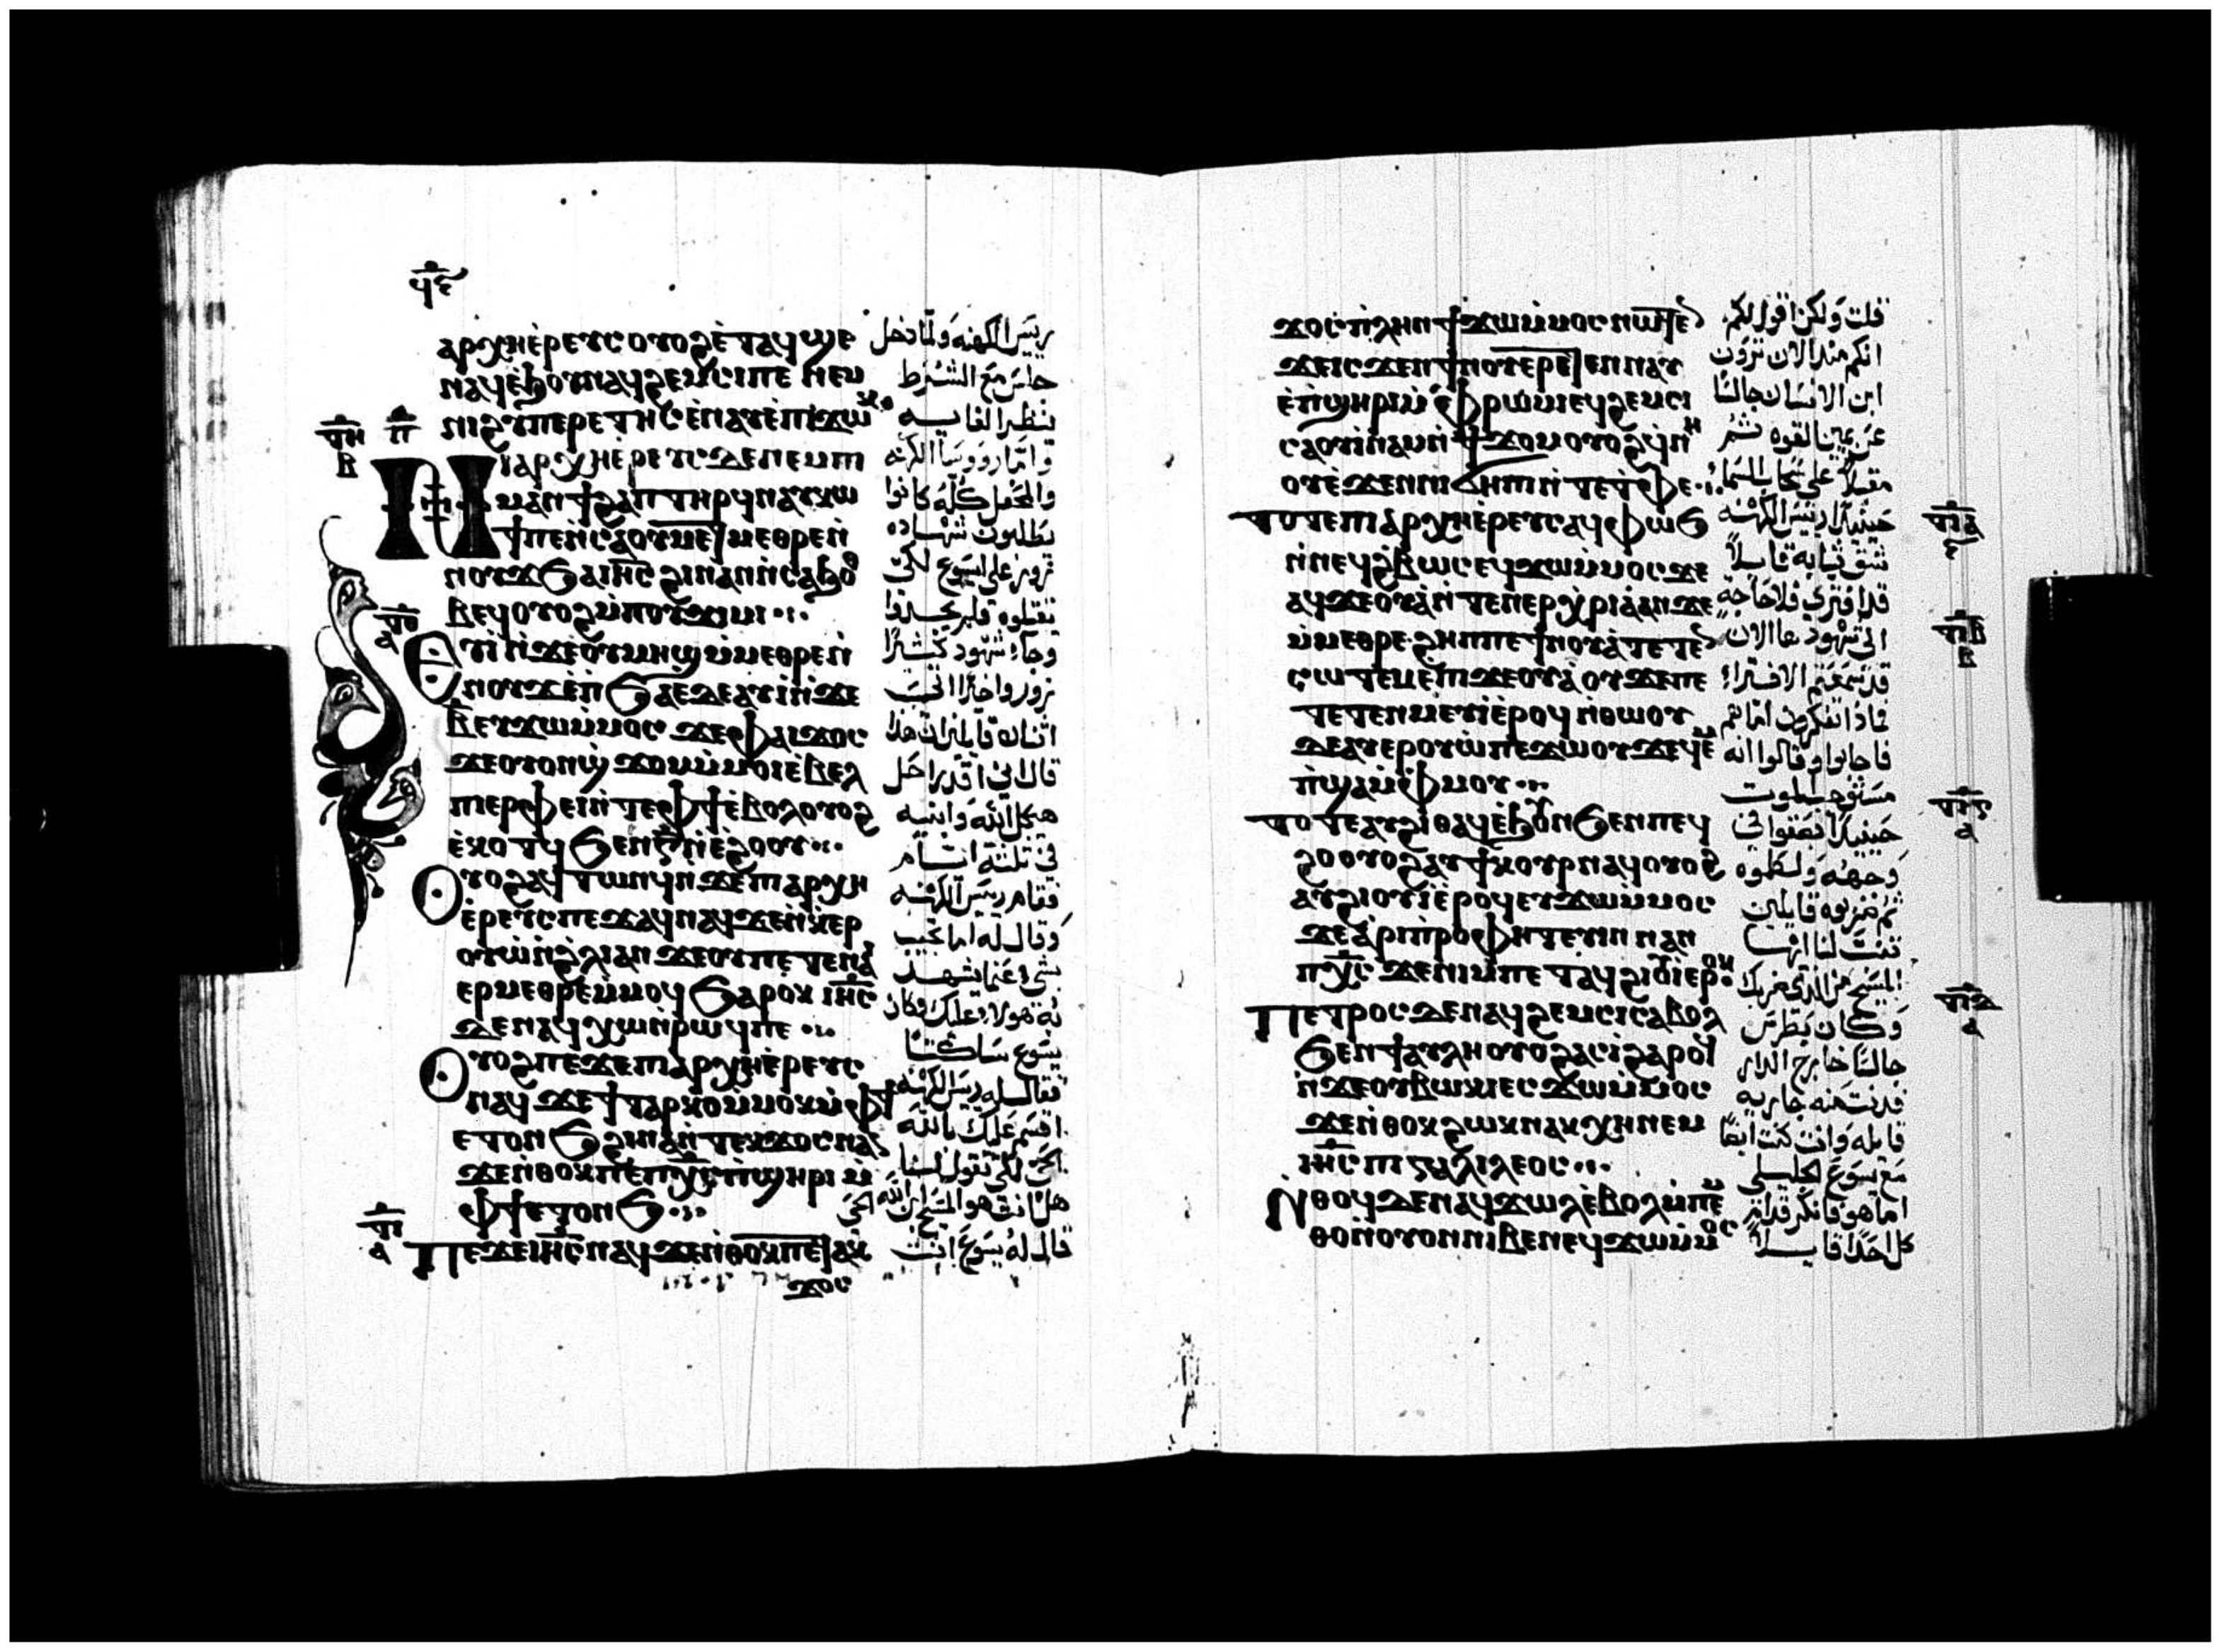 ϥⲋ
ⲁⲣⲭⲏⲉⲣⲉⲩⲥ ⲟⲩⲟϩ ⲉⲧⲁϥϣⲉ
ⲛⲁϥ ⲉϧⲟⲩⲛ ⲛⲁϥϩⲉⲙⲥⲓ ⲡⲉ ⲛⲉⲙ
ⲛⲓϩⲩⲡⲉⲣⲉⲧⲏⲥ ⲉⲛⲁⲩ ⲉⲡⲓϫⲱⲕ
ⲛⲓⲁⲣⲭⲏⲉⲣⲉⲩⲥ ⲇⲉ ⲛⲉⲙ ⲡⲓ
ⲙⲁⲛϯϩⲁⲡ ⲧⲏⲣϥ ⲛⲁⲩⲕⲱ
ϯ ⲡⲉ ⲛⲥⲁ ⲟⲩⲙⲉⲧⲙⲉⲑⲣⲉ ⲛ
ⲛⲟⲩϫ ϧⲁ ⲓⲏⲥ ϩⲓⲛⲁ ⲛⲥⲉϧⲟ
ⲑⲃⲉϥ ⲟⲩⲟϩ ⲙⲡⲟⲩϫⲓⲙⲓ
ⲉⲧⲓ ⲛϫⲉ ⲟⲩⲙⲏϣ ⲙⲙⲉⲑⲣⲉ ⲛ
ⲛⲟⲩϫ ⲉⲛϧⲁⲉ ⲇⲉ ⲁⲩⲓ ⲛϫⲉ
ⲃ ⲉⲩϫⲱ ⲙⲙⲟⲥ ϫⲉ ⲫⲁⲓ ϫⲟⲥ
ϫⲉ ⲟⲩⲟⲛϣϫⲟⲙ ⲙⲙⲟⲓ ⲉⲃⲉⲗ
ⲡⲓⲉⲣⲫⲉⲓ ⲛⲧⲉ ⲫϯ ⲉⲃⲟⲗ ⲟⲩⲟϩ
ⲉⲕⲟⲧϥ ϧⲉⲛ ⲅ ⲛⲉϩⲟⲟⲩ
ⲟⲩⲟϩ ⲁϥⲧⲱⲛϥ ⲛϫⲉ ⲡⲓⲁⲣⲭⲏ
ⲉⲣⲉⲩⲥ ⲡⲉϫⲁϥ ⲛⲁϥ ϫⲉ ⲛⲕⲉⲣ
ⲟⲩⲱ ⲛϩⲗⲓ ⲁⲛ ϫⲉ ⲟⲩ ⲡⲉⲧⲉ ⲛⲁⲓ
ⲉⲣⲙⲉⲑⲣⲉ ⲙⲙⲟϥ ϧⲁⲣⲟⲕ ⲓⲏⲥ
ⲇⲉ ⲛⲁϥⲭⲱ ⲛⲣⲱϥ ⲡⲉ
ⲟⲩⲟϩ ⲡⲉϫⲉ ⲡⲓⲁⲣⲭⲏⲉⲣⲉⲩⲥ
ⲛⲁϥ ϫⲉ ϯⲧⲁⲣⲕⲟ ⲙⲙⲟⲕ ⲙⲫϯ
ⲉⲧⲟⲛϧ ϩⲓⲛⲁ ⲛⲧⲉⲕϫⲟⲥ ⲛⲁⲛ
ϫⲉ ⲛⲑⲟⲕ ⲡⲉ ⲡⲭⲥ ⲡϣⲏⲣⲓ ⲙ
ⲫϯ ⲉⲧⲟⲛϧ
ⲡⲉϫⲉ ⲓⲏⲥ ⲛⲁϥ ϫⲉ ⲛⲑⲟⲕ ⲡⲉⲧⲁⲕ
ϫⲟⲥ
ريس الكهنه ولما دخل
جلس مع الشرط
ينظر الغايه
واما رووسا الكهنه
والمحفل كله كانوا
يطلبون شهاده
زور على ايسوع لكي
يقتلوه فلم يجدوا
وجا شهود كثيرا
زور واخيرا اتى
اثنان قايلين ان هذا
قال اني اقدر احل
هيكل الله وابنيه
في ثلثة ايام
فقام ريس الكهنه
وقال له اما تجيب
بشي عما يشهد
به هولاء عليك وكان
يسوع ساكتا
فقال له ريس الكهنه
اقسم عليك بالله
الحي لكي تقول لنا
هل انت هو المسيح ابن الله الحي
قال له يسوع انت
ϫⲟⲥ ⲡⲗⲏⲛ ϯϫⲱ ⲙⲙⲟⲥ ⲛⲱⲧⲉⲛ
ϫⲉ ⲓⲥϫⲉⲛ ϯⲛⲟⲩ ⲉⲣⲉⲧⲉⲛⲛⲁⲩ
ⲉⲡϣⲏⲣⲓ ⲙⲫⲣⲱⲙⲓ ⲉϥϩⲉⲙⲥⲓ
ⲥⲁⲟⲩⲓⲛⲁⲙ ⲛϯϫⲟⲙ ⲟⲩⲟϩ ϥⲛⲏ
ⲟⲩ ⲉϫⲉⲛ ⲛⲓϭⲏⲡⲓ ⲛⲧⲉ ⲧⲫⲉ
ⲧⲟⲧⲉ ⲡⲓⲁⲣⲭⲏⲉⲣⲉⲩⲥ ⲁϥⲫⲱϧ
ⲛⲛⲉϥϩⲃⲱⲥ ⲉϥϫⲱ ⲙⲙⲟⲥ ϫⲉ
ⲁϥϫⲉⲟⲩⲁ ⲛⲧⲉⲛⲉⲣⲭⲣⲓⲁ ⲁⲛ ϫⲉ
ⲙⲙⲉⲑⲣⲉ ϩⲏⲡⲡⲉ ϯⲛⲟⲩ ⲁⲧⲉⲧⲉⲛ
ⲥⲱⲧⲉⲙ ⲉⲡⲓϫⲉⲟⲩⲁ ⲟⲩ ϫⲉ ⲡⲉ
ⲧⲉⲧⲉⲛⲙⲉⲩⲓ ⲉⲣⲟϥ ⲛⲑⲱⲟⲩ
ⲇⲉ ⲁⲩⲉⲣⲟⲩⲱ ⲡⲉϫⲱⲟⲩ ϫⲉ ϥⲉⲙ
ⲡϣⲁ ⲙⲫⲙⲟⲩ
ⲧⲟⲧⲉ ⲁⲩϩⲓⲑⲁϥ ⲉϧⲟⲩⲛ ϧⲉⲛ ⲡⲉϥ
ϩⲟ ⲟⲩⲟϩ ⲁⲩϯⲕⲟⲩⲣ ⲛⲁϥ ⲟⲩⲟϩ
ⲁⲩϩⲓⲟⲩⲓ ⲉⲣⲟϥ ⲉⲩϫⲱ ⲙⲙⲟⲥ
ϫⲉ ⲁⲣⲓⲡⲣⲟⲫⲏⲧⲉⲩⲓⲛ ⲛⲁⲛ
ⲡⲭⲥ ϫⲉ ⲛⲓⲙ ⲡⲉⲧⲁϥϩⲓⲟⲩⲓ ⲉⲣⲟⲕ
ⲡⲉⲧⲣⲟⲥ ⲇⲉ ⲛⲁϥϩⲉⲙⲥⲓ ⲥⲁⲃⲟⲗ
ϧⲉⲛ ϯⲁⲩⲗⲏ ⲟⲩⲟϩ ⲁⲥⲓ ϩⲁⲣⲟϥ
ⲛϫⲉ ⲟⲩⲃⲱⲕⲓ ⲉⲥϫⲱ ⲙⲙⲟⲥ
ϫⲉ ⲛⲑⲟⲕ ϩⲱⲕ ⲛⲁⲕⲭⲏ ⲛⲉⲙ
ⲓⲏⲥ ⲡⲓⲅⲁⲗⲓⲗⲉⲟⲥ
ⲛⲑⲟϥ ⲇⲉ ⲛⲁϥϫⲱⲗ ⲉⲃⲟⲗ ⲙⲡⲉⲙ
ⲑⲟ ⲛⲟⲩⲟⲛ ⲛⲓⲃⲉⲛ ⲉϥϫⲱ ⲙⲙⲟⲥ
قلت ولكن اقول لكم
انكم منذ الان ترون
ابن الانسان جالسا
عن يمين القوه ثم
مقبلا على سحاب السما
حينيذ ريس الكهنه
شق ثيابه قايلا
قد افترى فلا حاجة
الى شهود ها الان
قد سمعتم الافترا
فماذا تفكرون اما هم
فاجابوا وقالوا انه
مستوجب الموت
حينيذ بصقوا في
وجهه ولطموه
ثم ضربوه قايلين
تنبت لنا ايها
المسيح من الذي ضربك
وكان بطرس
جالسا خارج الدار
فدنت منه جاريه
قايله وانت كنت ايضا
مع يسوع الجليلي
اما هو فانكر قدام
كل احد قايلا